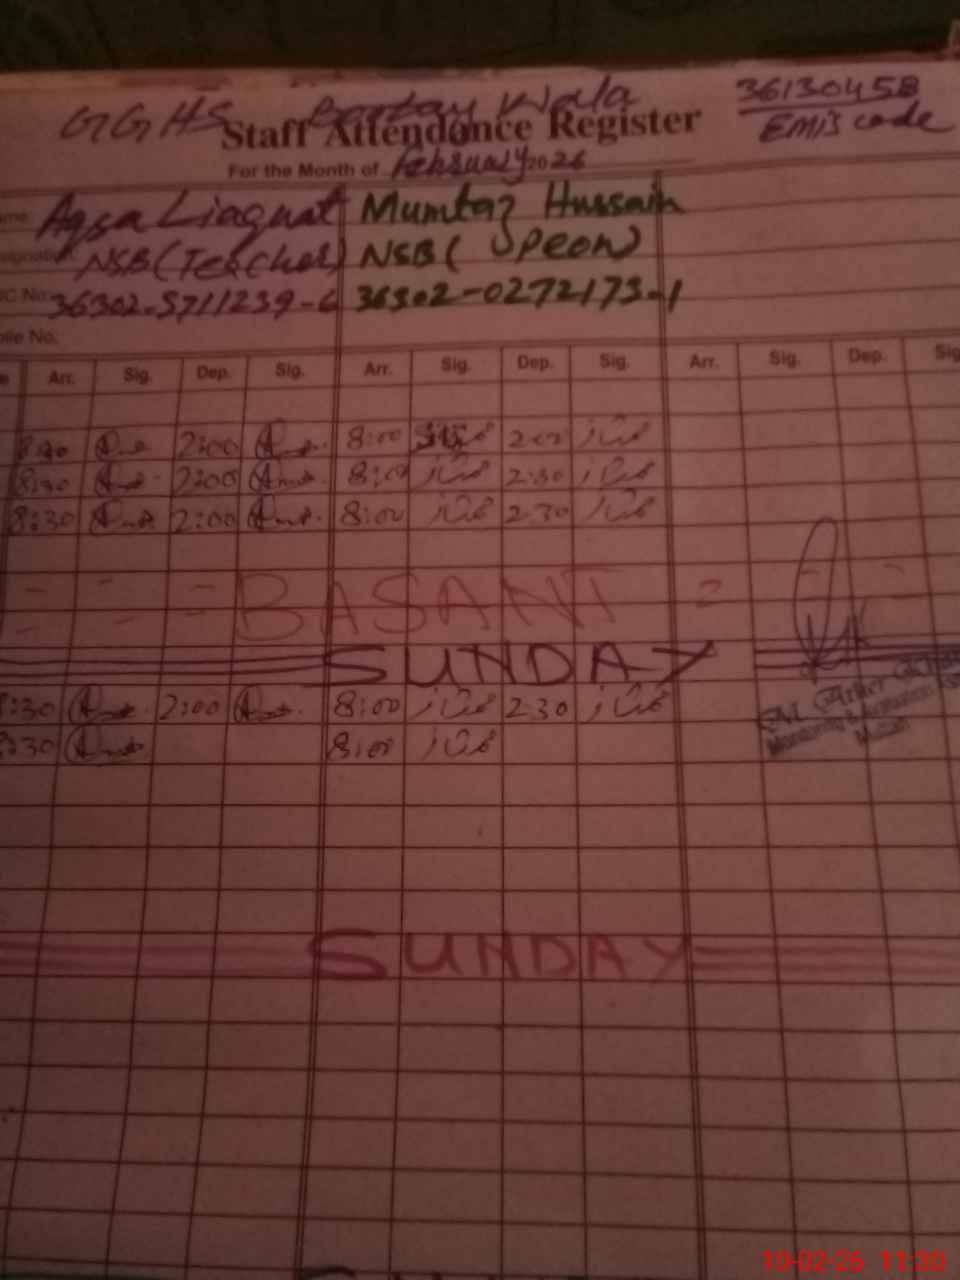 GGHS Bootay Wala 36130458
Staff Attendance Register EMIS code
For the Month of February 2026
Aqsa Liaquat Mumtaz Hussain
NSB (Teacher) NSB ( Peon)
CNo. 36302-5711239-6 36302-0272173-1
ile No.
Arr. Sig. Dep. Sig. Arr. Sig. Dep. Sig. Arr. Sig. Dep. Sig
8:30 2:00 8:00 ممتاز 2:00 ممتاز
8:30 2:00 8:00 ممتاز 2:30 ممتاز
8:30 2:00 8:00 ممتاز 2:30 ممتاز
BASANT
SUNDAY
8:30 2:00 8:00 ممتاز 2:30 ممتاز
8:30 8:00 ممتاز
Monitoring &
Multan
SUNDAY
10-02-26 11:30